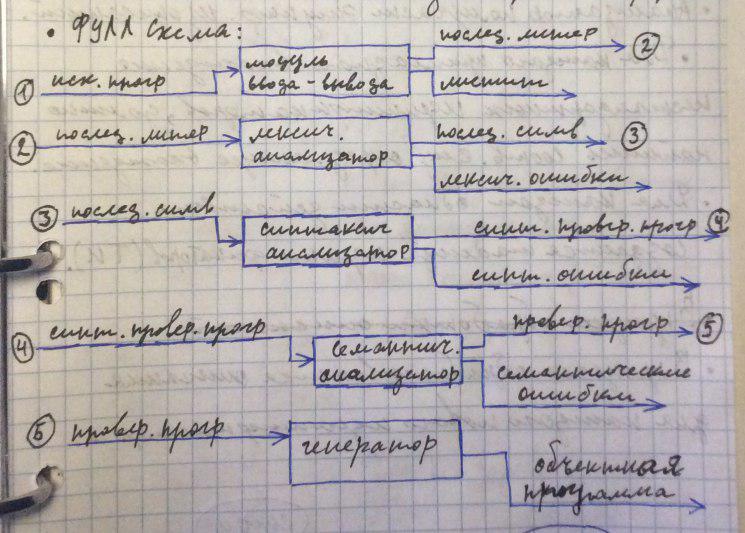 • ФУЛЛ схема:
① исх. прогр
модуль
ввода-вывода
послед. литер ②
листинг
② послед. литер
лексич.
анализатор
послед. симв ③
лексич. ошибки
③ послед. симв
синтаксич
анализатор
синт. провер. прогр ④
синт. ошибки
④ синт. провер. прогр
семантич.
анализатор
провер. прогр ⑤
семантические
ошибки
⑤ провер. прогр
генератор
объектная
программа